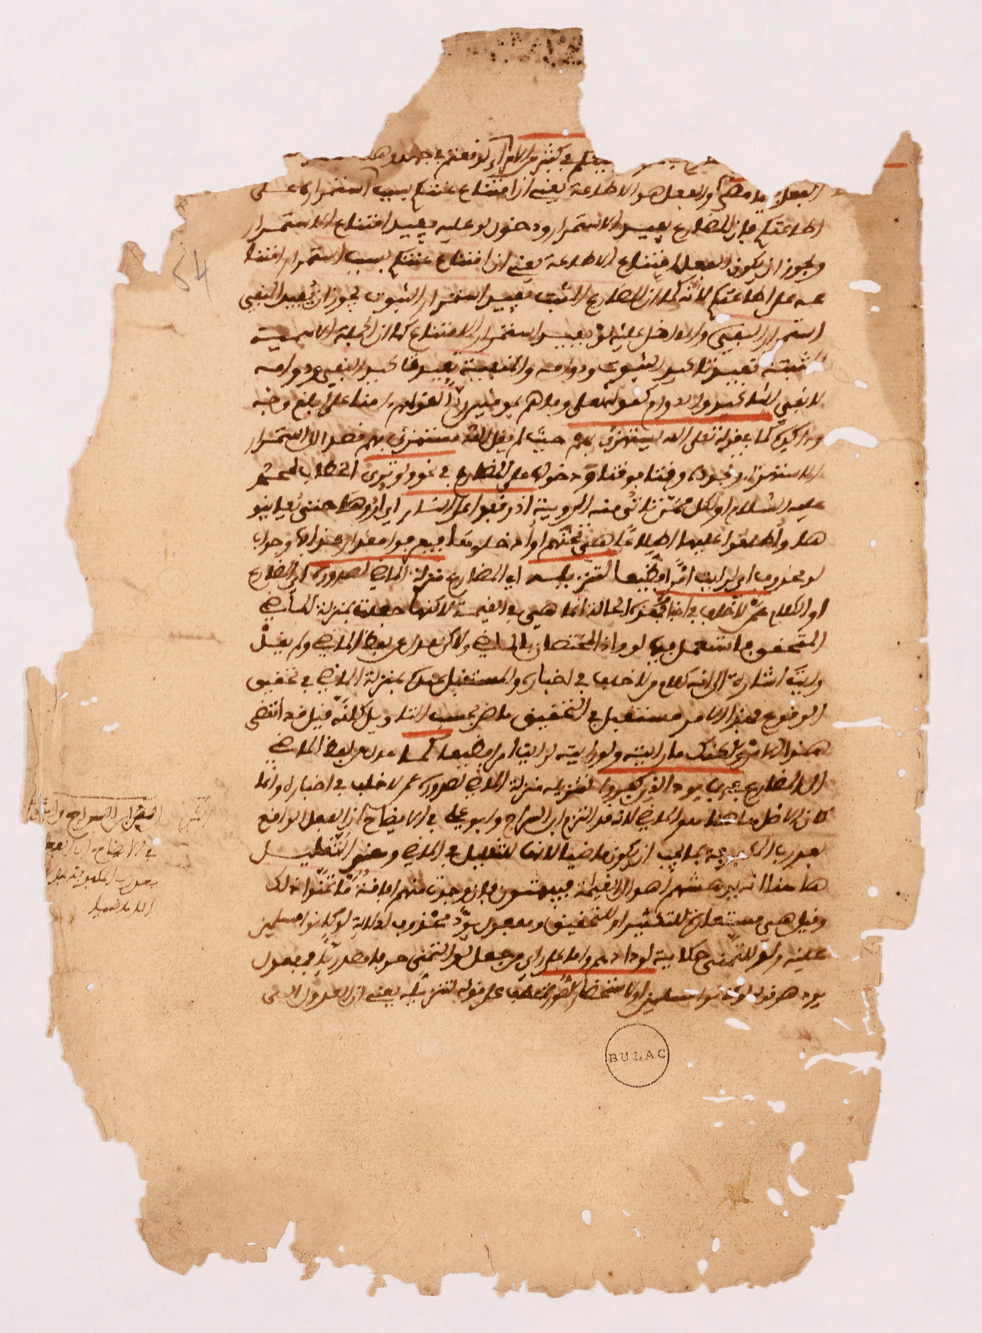 يطيعكم في كثير من الأمر لعنتم أي لوقعتم في جهد وهلا
الفعل والفعل هو الاطاعة يعني ان امتناع عنتكم بسبب استمراره على
اطاعتكم فان المضارع يفيد الاستمرار ودخول لو عليه يفيد امتناع الاستمرار
ويجوز ان يكون الفعل امتناع الاطاعة يعني ان امتناع عنتكم بسبب استمرار امتنا
عه على اطاعتكم لانه كما ان المضارع المثبت يفيد استمرار الثبوت يجوز ان يفيد النفي
استمرار النفي والداخل عليه لو يفيد استمرار الامتناع كما ان الجملة الاسمية
المثبتة تفيد تاكيد الثبوت ودوامه والمنفية تفيد تاكيد النفي ودوامه
لا نفي التاكيد والدوام كقوله تعلى وما هم بمومنين ردا لقولهم امنا على ابلغ وجه
وءاكده كما في قوله تعلى الله يستهزئ بهم حيث لم يقل الله مستهزئ بهم قصدا الى استمرار
الاستهزاء وتجدده وقتا فوقتا ودخولها على المضارع في نحو ولو ترى الخطاب لمحمد
عليه السلام او لكل من تتاتى منه الروية اذ وقفوا على النار اي اروها حتى يعاينو
ها واطلعوا عليها اطلاعا هي تحتهم او ادخلوها فيعرفوا مقدار عذابها وجواب
لو محذوف اي لرايت امرا فظيعا لتنزيله اي المضارع منزلة الماضي لصدوره اي المضارع
او الكلام عمن لا خلاف في اخباره فهذه الحالة انما هي في القيمة لاكنها جعلت بمنزلة الماضي
المتحقق فاستعمل فيها لو واذ المختصان بالماضي ولاكن عدل عن لفظ الماضي ولم يقل
ورايت اشارة الى انه كلام من لا خلاف في اخباره والمستقبل عنده بمنزلة الماضي في تحقق
الوقوع فهذا الامر مستقبل في التحقيق ماض بحسب التاويل كانه قيل قد انقضى
هذا الامر لكنك ما رايته ولو رايته لرايت امرا فظيعا كما عدل عن لفظ الماضي
الى المضارع في ربما يود الذين كفروا لتنزيله منزلة الماضي لصدوره عمن لا خلاف في اخباره وانما
كان الاصل هاهنا هو الماضي لانه قد التزم ابن السراج وابو علي في الايضاح ان الفعل الواقع
بعد رب المكفوفة بما يجب ان يكون ماضيا لانها للتقليل في الماضي ومعنى التقليل
هاهنا انه يدهشهم اهوال القيمة فيبهتون فان وجدت منهم افاقة ما تمنوا ذلك
وقيل هي مستعارة للتكثير او للتحقيق ومفعول يود محذوف لدلالة لو كانوا مسلمين
عليه ولو للتمني حكاية لودادهم واما على راي من جعل لو التمني حرفا مصدريا فمفعول
يود هو قوله لو كانوا مسلمين او لاستحضار الصورة عطف على قوله لتنزيله يعني ان العدول الى
BULAC
54